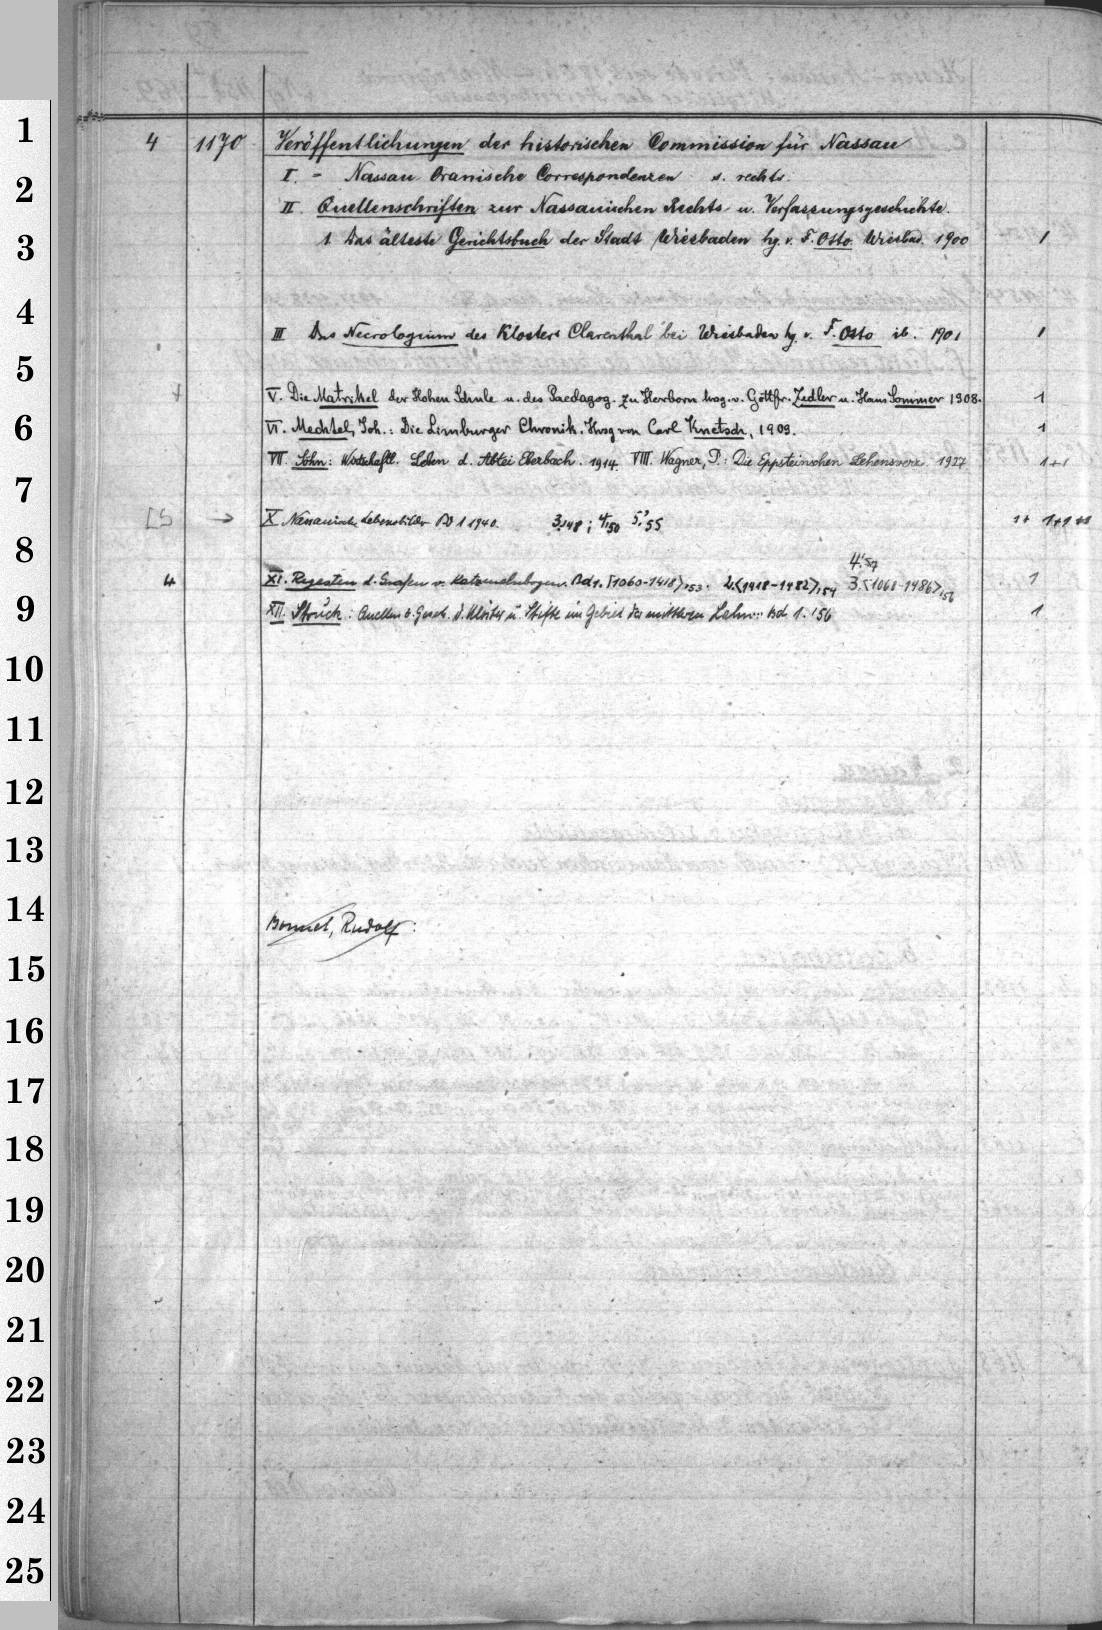 1
4 1170 Veröffentlichungen der historischen Commission für Nassau
2
I. - Nassau Oranische Correspondenzen s. rechts.
II. Quellenschriften zur Nassauischen Rechts u. Verfassungsgeschichte.
3
1. Das älteste Gerichtsbuch der Stadt Wiesbaden hg. v. F. Otto. Wiesbad. 1900 1
4
III Das Necrologium des Klosters Clarenthal bei Wiesbaden hg. v. F. Otto ib. 1901 1
5
V. Die Matrikel der Hohen Schule u. des Paedagog. zu Herborn hrsg. v. Gottfr. Zedler u. Hans Sommer 1908. 1
6
VI. Mechtel, Joh.: Die Limburger Chronik. Hrsg von Carl Knetsch, 1909. 1
VII. Söhn: Wirtschaftl. Leben d. Abtei Eberbach. 1914. VIII. Wagner, P.: Die Eppsteinschen Lehensverz. 1927 1+1
7
LS → X Nassauische Lebensbilder Bd 1 1940. 3.'48; 4/'50 5.'55 1+ 1+1+1
8
4.'57
4 XI. Regesten d. Grafen v. Katzenelnbogen. Bd 1. <1060-1418> '53. 2. <1418-1482> '54 3. <1060-1486> '56 1
9
XII. Struck: Quellen z. Gesch. d. Klöster u. Stifte im Gebiet der mittleren Lahn: Bd 1. '56 1
10
11
12
13
14
Bonnet, Rudolf:
15
16
17
18
19
20
21
22
23
24
25